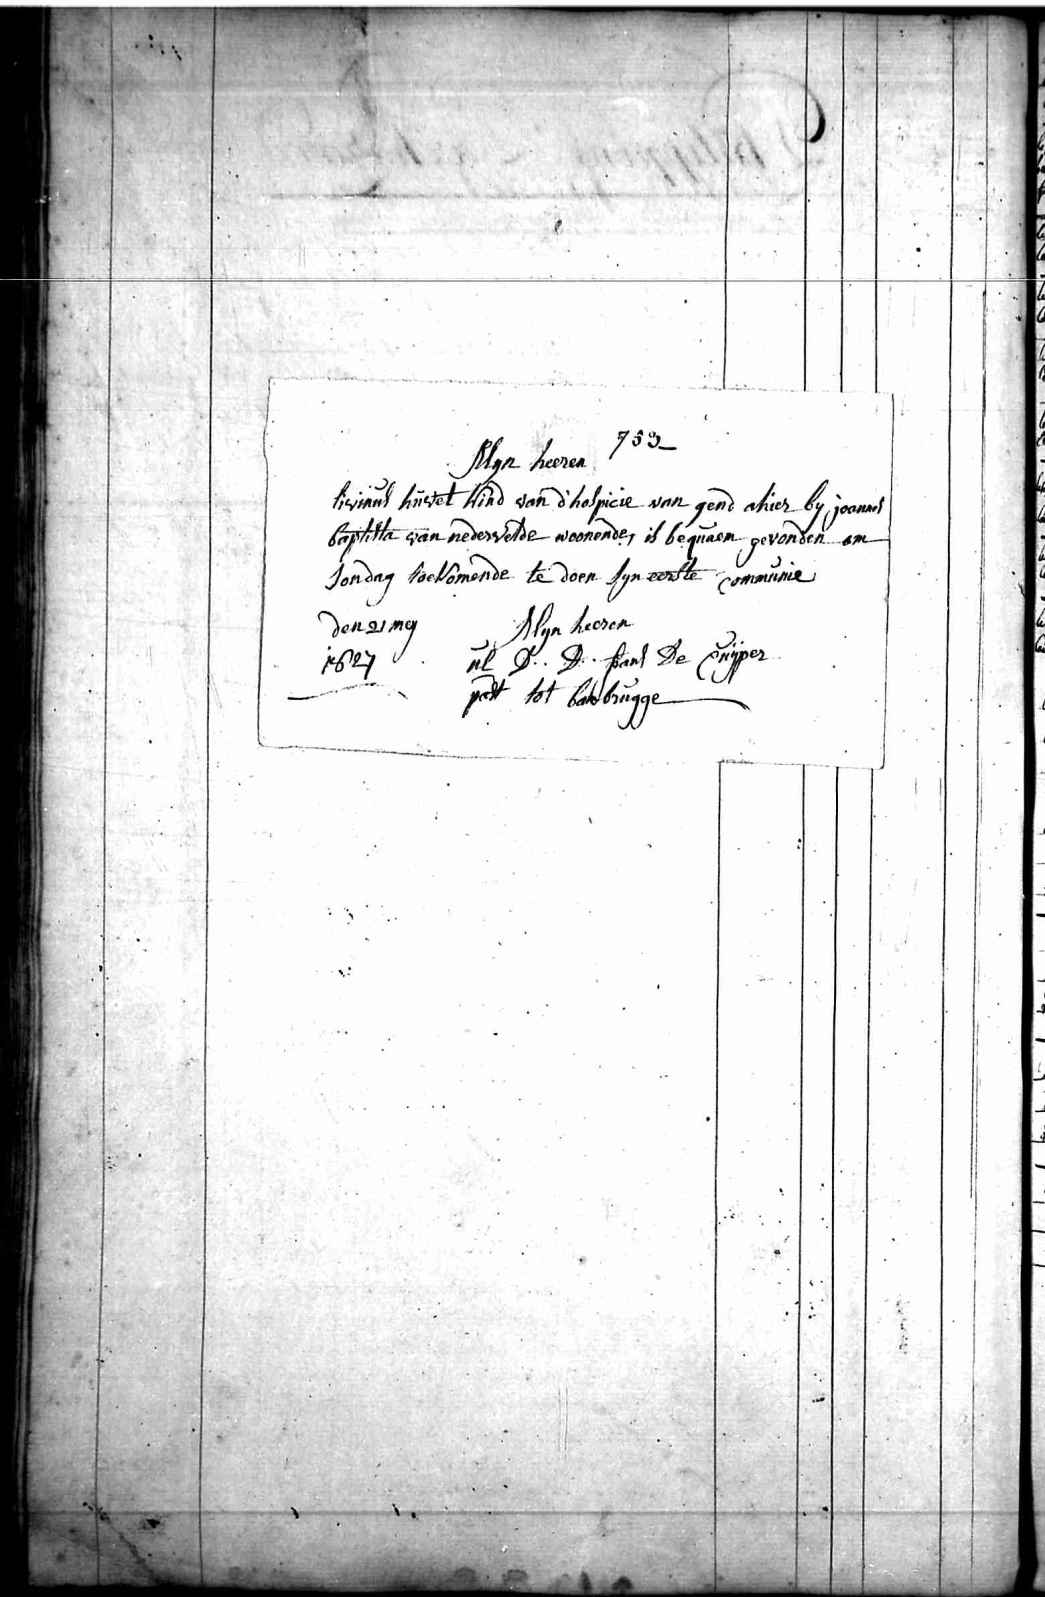 753
Myn heeren
livinus huvet kind van d'hospicie van gend alhier by joannes
baptista van nedervelde woonende, is bequaem gevonden om
sondag toekomende te doen syn eerste communie
den 21 mey
1827
Myn heeren
ul D.. D.. frans De Cuijper
past tot